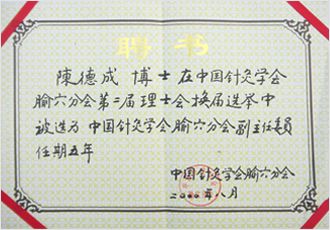 聘书
陳德成 博士 在中国针灸学会
腧穴分会第二届理士会换届选举中
被选为 中国针灸学会腧穴分会副主任委员
任期五年
中国针灸学会腧穴分会
二000年八月